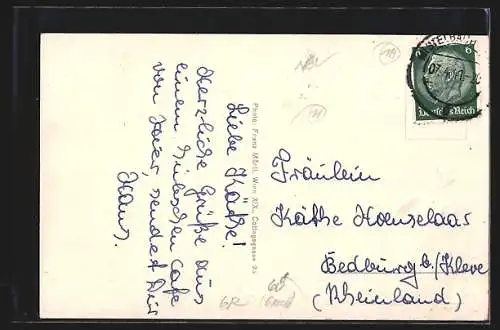 Liebe Käthe!
Herzliche Grüße aus
einem hübschen Cafe
von hier, sendet Dir
Hans.
Photo: Franz Mörtl, Wien XIX, Cottagegasse 25
6
Deutsches Reich
Fräulein
Käthe Hoenselaar
Bedburg b./Kleve
(Rheinland)